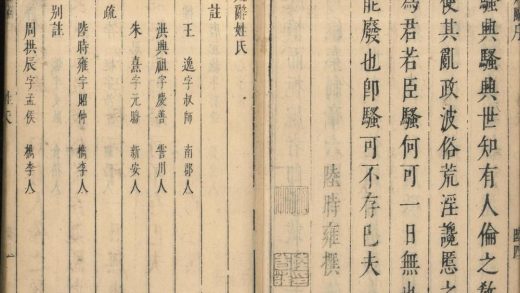 騷興騷興世知有人倫之教
使其亂政波俗荒淫讒慝之
為君若臣騷何可一日無也
能廢也即騷可不存已夫
陸時雍撰
辭姓氏
註
王逸字叔師 南郡人
洪興祖字慶善 霅川人
朱熹字元晦 新安人
疏
陸時雍字昭仲 檇李人
別註
周拱辰字孟侯 檇李人
姓氏 一